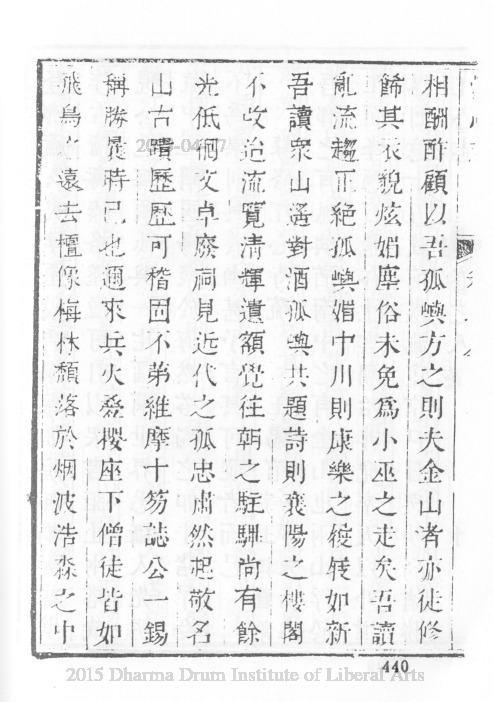 相酬酢顧以吾孤嶼方之則夫金山者亦徒修
飾其衣貌炫媚塵俗未免爲小巫之走矣吾讀
亂流趨正絕孤嶼媚中川則康樂之如新
吾讀衆山遙對酒孤嶼共題詩則襄陽之樓閣
不改迨流覽清輝遺額覺往朝之駐蹕尚有餘
光低徊文卓廢祠見近代之孤忠肅然起敬名
山古蹟歷歷可稽固不弟維摩十笏誌公一錫
稱勝曩時已也邇來兵火叠櫻座下僧徒皆如
飛鳥之遠去檀像梅林頹落於烟波浩淼之中
440
2015 Dharma Drum Institute of Liberal Arts